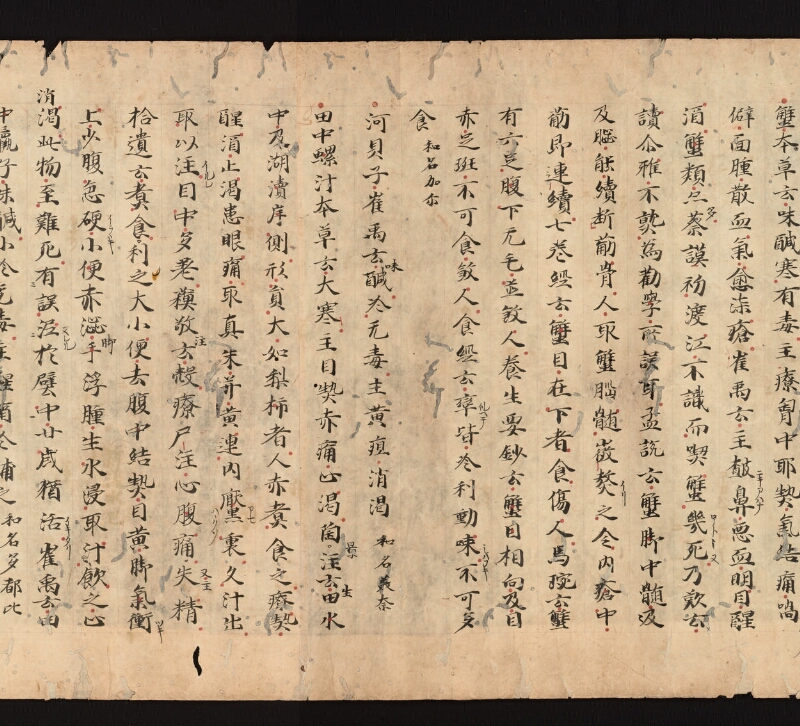 蟹本草云味醎寒有毒主療胷中耶熱氣结痛喎
僻面腫散血氣愈柒瘡崔禹云主皶鼻惡血明目醒
酒蟹類多蔡謨初渡江不識而喫蟹幾死乃歎云
讀尒雅不熟為勸學所誤耳孟詵云蟹脚中髓及
及腦能續断筋骨人取蟹腦髓微熬之令内瘡中
筋即連續七卷經云蟹目在下者食傷人馬琬云蟹
有六足腹下无毛並煞人養生要鈔云蟹目相向及目
赤足斑不可食煞人食經云蟑皆冷利動嗽不可多
食 和名加尓
河貝子崔禹云味醎冷无毒主黄疸消渴 和名蓑奈
田中螺汁本草云大寒主目熱赤痛止渴陶景注云生田水
中及湖瀆岸側形員大如梨柿者人亦煑食之療熱
醒酒止渴患眼痛取真朱并黄連内黡裏久汁出
取以注目中多差蘓敬云殻療尸注心腹痛失精
拾遺云煑食利之大小便去腹中结熱目黄脚氣衝
上少腹急硬小便赤澁脚手浮腫生水浸取汁飲之止
消渴此物至難死有誤泥於壁中廿歳猶活崔禹云
中蠃子味醎小冷无毒主醒酒冷補之 和名多都比